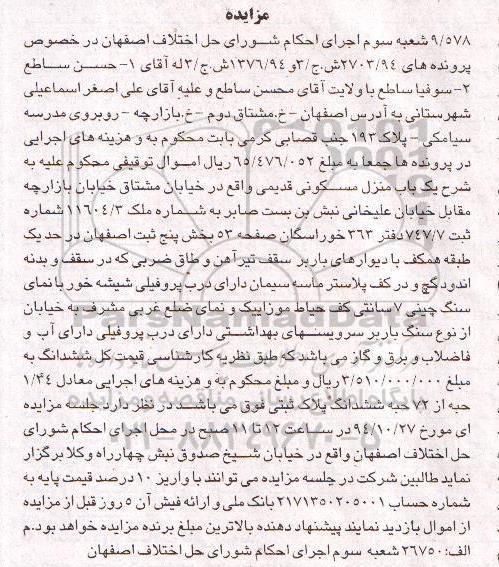 مزایده
۹/۵۷۸ شعبه سوم اجرای احکام شورای حل اختلاف اصفهان در خصوص
پرونده های ۲۷۰۳/۹۴ش.ج/۳و ۱۳۷۶/۹۴ش.ج/۳له آقای ۱- حسن ساطع
۲-سوفیا ساطع با ولایت آقای محسن ساطع و علیه آقای علی اصغر اسماعیلی
شهرستانی به آدرس اصفهان -خ.مشتاق دوم -خ.بازارچه- روبروی مدرسه
سیامکی - پلاک ۱۹۳ جنب قصابی کرمی بابت محکوم به و هزینه های اجرایی
در پرونده ها جمعا به مبلغ ۶۵/۴۷۶/۰۵۲ ریال اموال توقیفی محکوم علیه به
شرح یک باب منزل مسکونی قدیمی واقع در خیابان مشتاق خیابان بازارچه
مقابل خیابان علیخانی نبش بن بست صابر به شماره ملک ۱۱۶۰۴/۳ شماره
ثبت ۷۴۷/۷ دفتر ۳۶۳ خوراسگان صفحه ۵۳ بخش پنج ثبت اصفهان در حد یک
طبقه همکف با دیوارهای باربر سقف تیر آهن و طاق ضربی که در سقف و بدنه
اندود گچ و در کف پلاستر ماسه سیمان دارای درب پروفیلی شیشه خور با نمای
سنگ چینی ۷ سانتی کف حیاط موزاییک و نمای ضلع غربی مشرف به خیابان
از نوع سنگ باربر سرویسهای بهداشتی دارای درب پروفیلی دارای آب و
فاضلاب و برق و گاز می باشد که طبق نظریه کارشناسی قیمت کل ششدانگ به
مبلغ ۳/۵۱۰/۰۰۰/۰۰۰ ریال و مبلغ محکوم به و هزینه های اجرایی معادل ۱/۳۴
حبه از ۷۲ حبه ششدانگ پلاک ثبتی فوق می باشد در نظر دارد جلسه مزایده
ای مورخ ۹۴/۱۰/۲۷ در ساعت ۱۲ تا ۱۱ صبح در محل اجرای احکام شورای
حل اختلاف اصفهان واقع در خیابان شیخ صدوق نبش چهارراه وکلا برگزار
نماید طالبین شرکت در جلسه مزایده می توانند با واریز ۱۰ درصد قیمت پایه به
شماره حساب ۲۱۷۱۳۵۰۲۰۵۰۰۱ بانک ملی و ارائه فیش آن ۵ روز قبل از مزایده
از اموال بازدید نمایند پیشنهاد دهنده بالاترین مبلغ برنده مزایده خواهد بود.م
الف:۲۶۷۵۰ شعبه سوم اجرای احکام شورای حل اختلاف اصفهان
۰۲۱-۸۸۳۴۹۶۷۰-۵